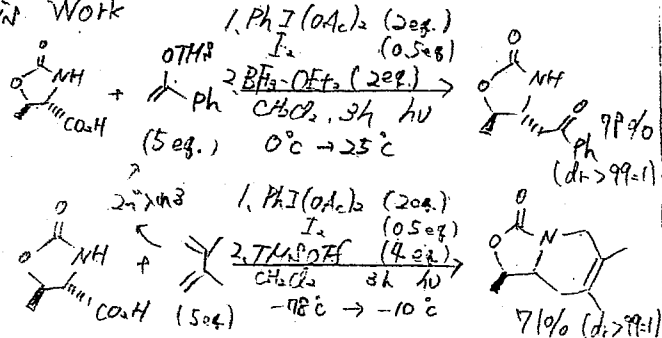 Work
1. PhI(OAc)₂ (2eq.)
I₂ (0.5eq)
2. BF₃-OEt₂ (2eq.)
CH₂Cl₂, 3h hν
0°C → 25°C
O
O
NH
CO₂H
+
OTMS
Ph
(5 eq.)
O
O
NH
O
Ph
78%
(dr >99:1)
1. PhI(OAc)₂ (2eq.)
I₂ (0.5eq)
2. TMSOTf (4eq.)
CH₂Cl₂ 3h hν
-78°C → -10°C
O
O
NH
CO₂H
+
(5eq)
O
O
N
71% (dr >99:1)